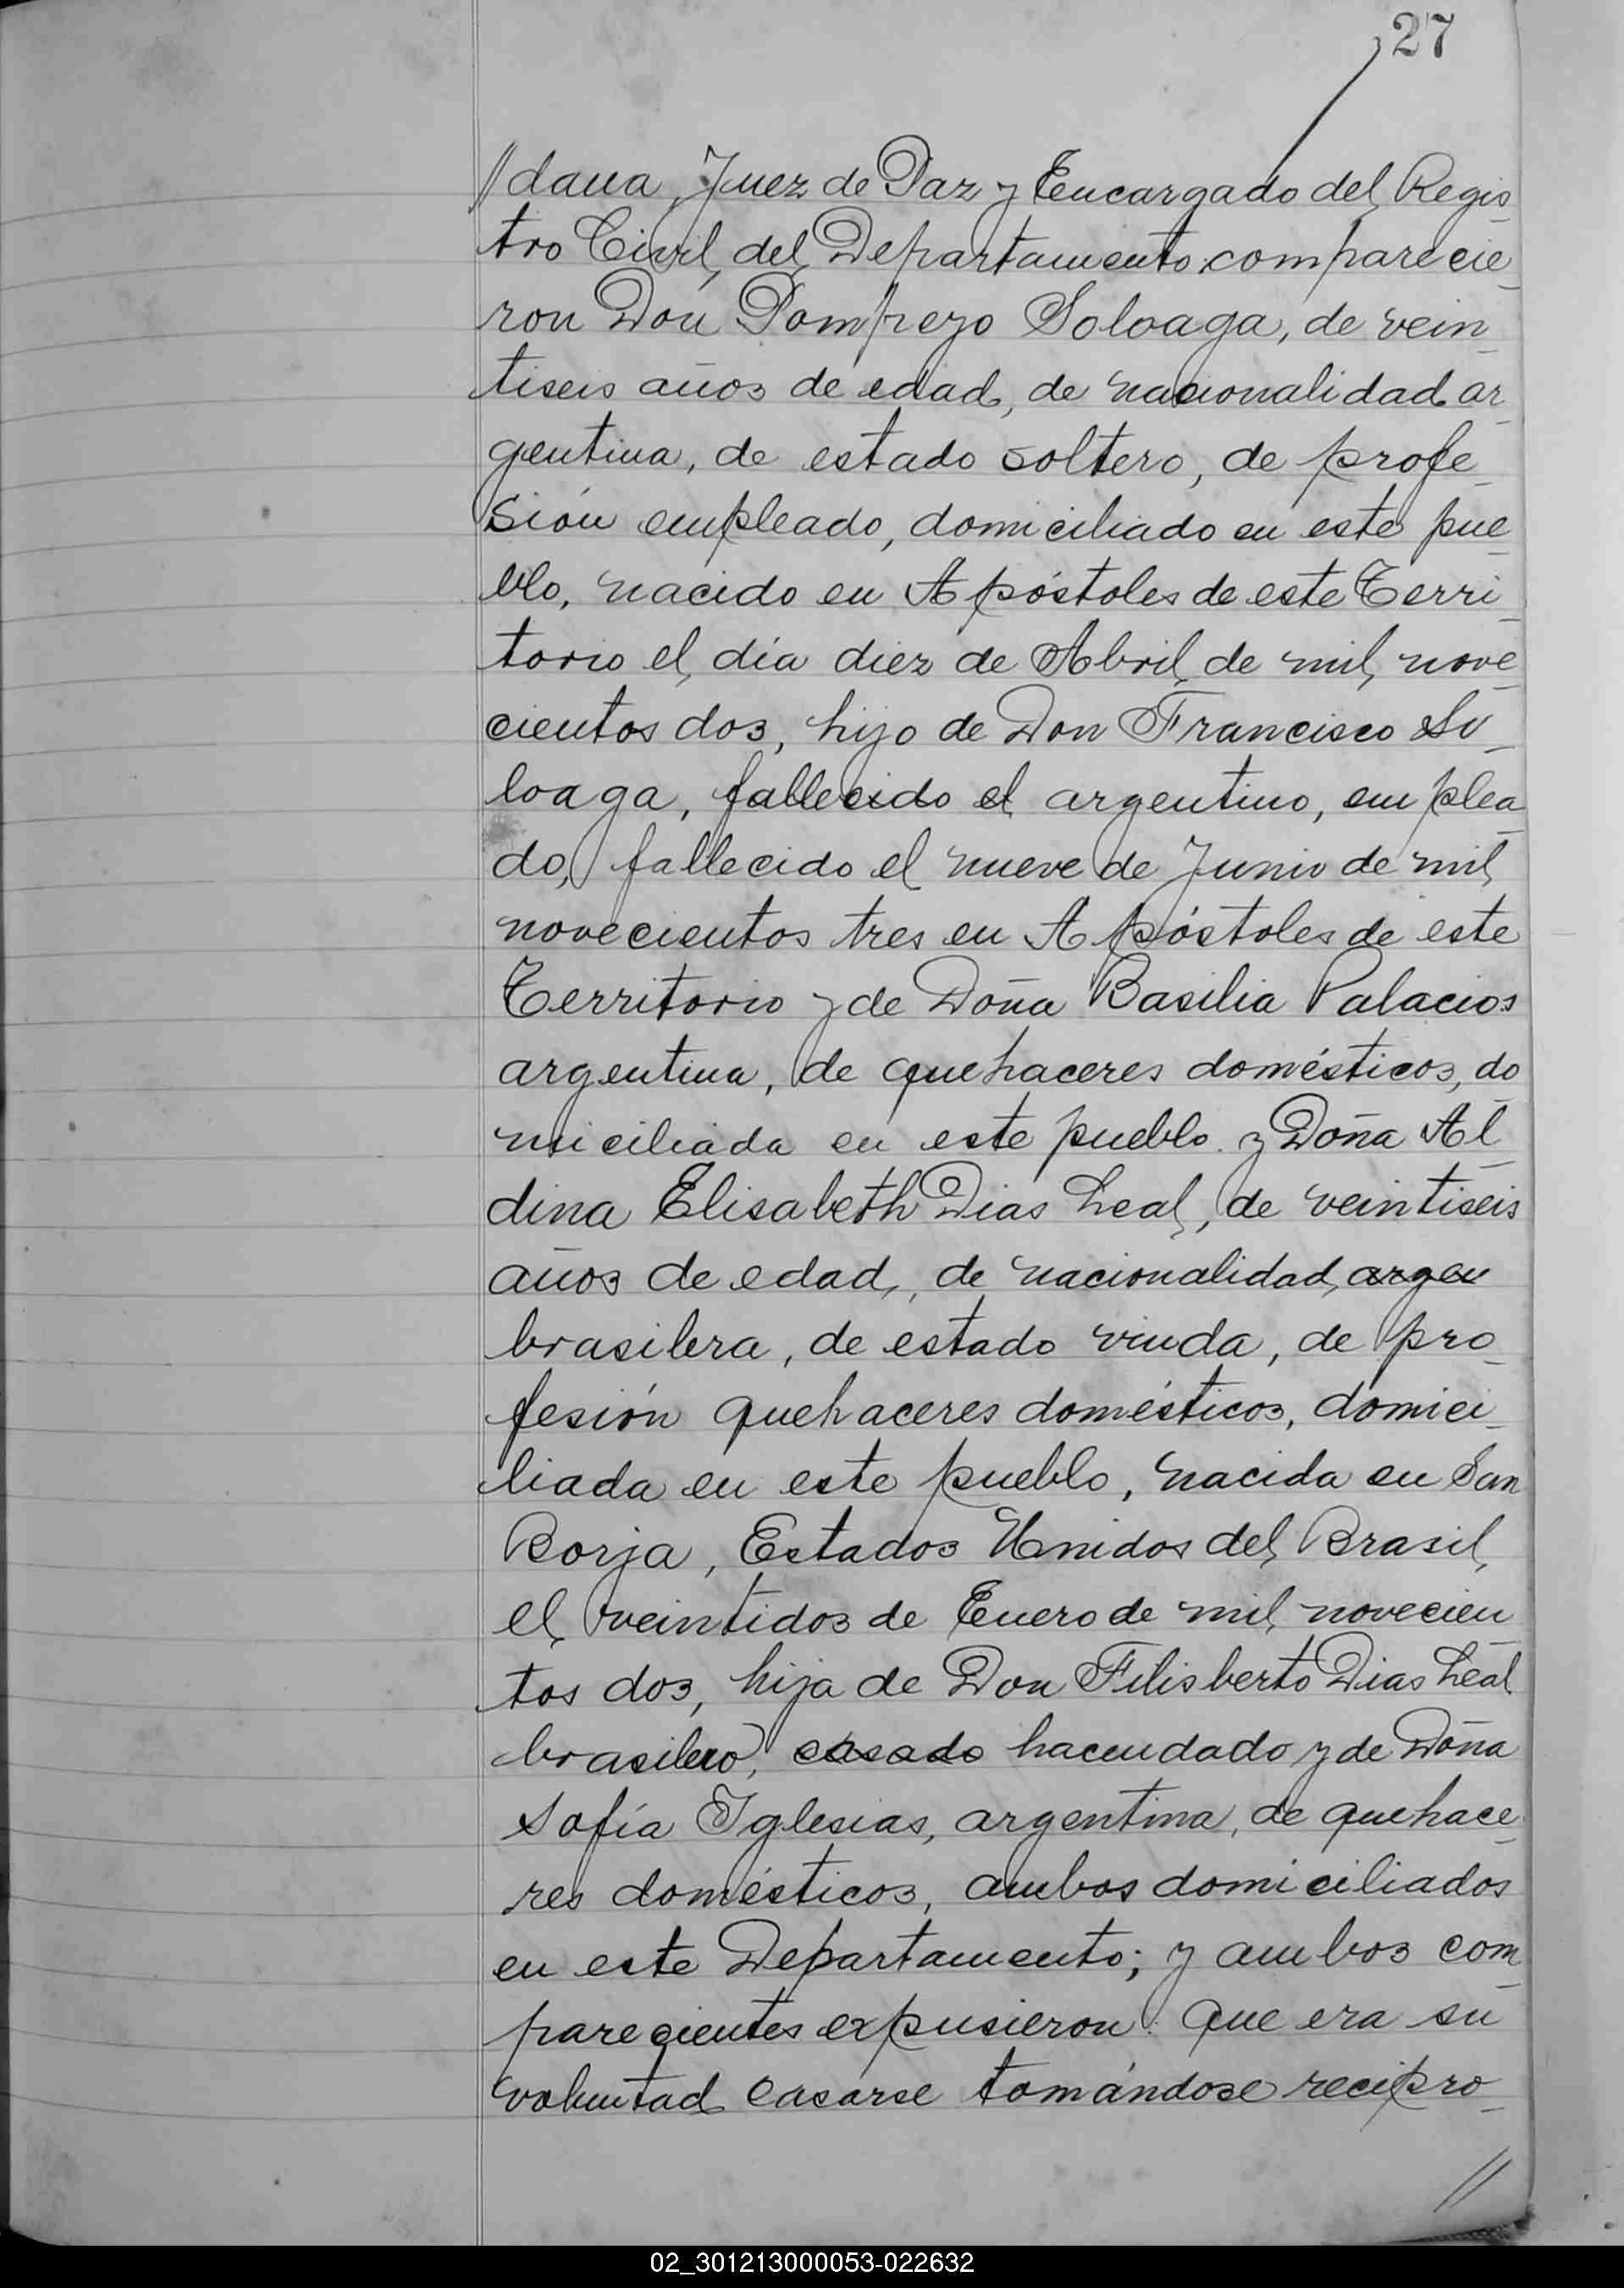 27
//dana, Juez de Paz y Encargado del Regis_
tro Civil del Departamento comparecie_
ron Don Pompeyo Soloaga, de vein_
tiseis años de edad, de nacionalidad ar_
gentina, de estado soltero, de profe_
sión empleado, domiciliado en este pue_
blo, nacido en Apóstoles de este Terri_
torio el día diez de Abril de mil nove_
cientos dos, hijo de Don Francisco So_
loaga, fallecido el argentino, emplea_
do, fallecido el nueve de Junio de mil
novecientos tres en Apóstoles de este
Territorio y de Doña Basilia Palacios
argentina, de quehaceres domésticos, do_
miciliada en este pueblo y Doña Al_
dina Elisabeth Dias Leal, de veintiseis
años de edad, de nacionalidad argen
brasilera, de estado viuda, de pro_
fesión quehaceres domésticos, domici_
liada en este pueblo, nacida en San
Borja, Estados Unidos del Brasil,
el veintidos de Enero de mil novecien_
tos dos, hija de Don Filisberto Dias Leal
brasilero, casado hacendado y de Doña
Sofía Iglesias, argentina, de quehace_
res domésticos, ambos domiciliados
en este Departamento; y ambos com_
parecientes expusieron: Que era su
voluntad casarse tomándose recipro_
//
02_301213000053-022632